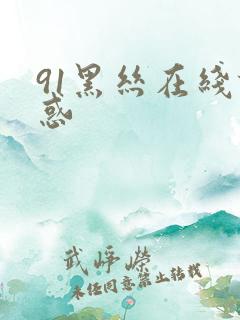 91黑丝在线
惑
武峥嵘
未经同意禁止转载